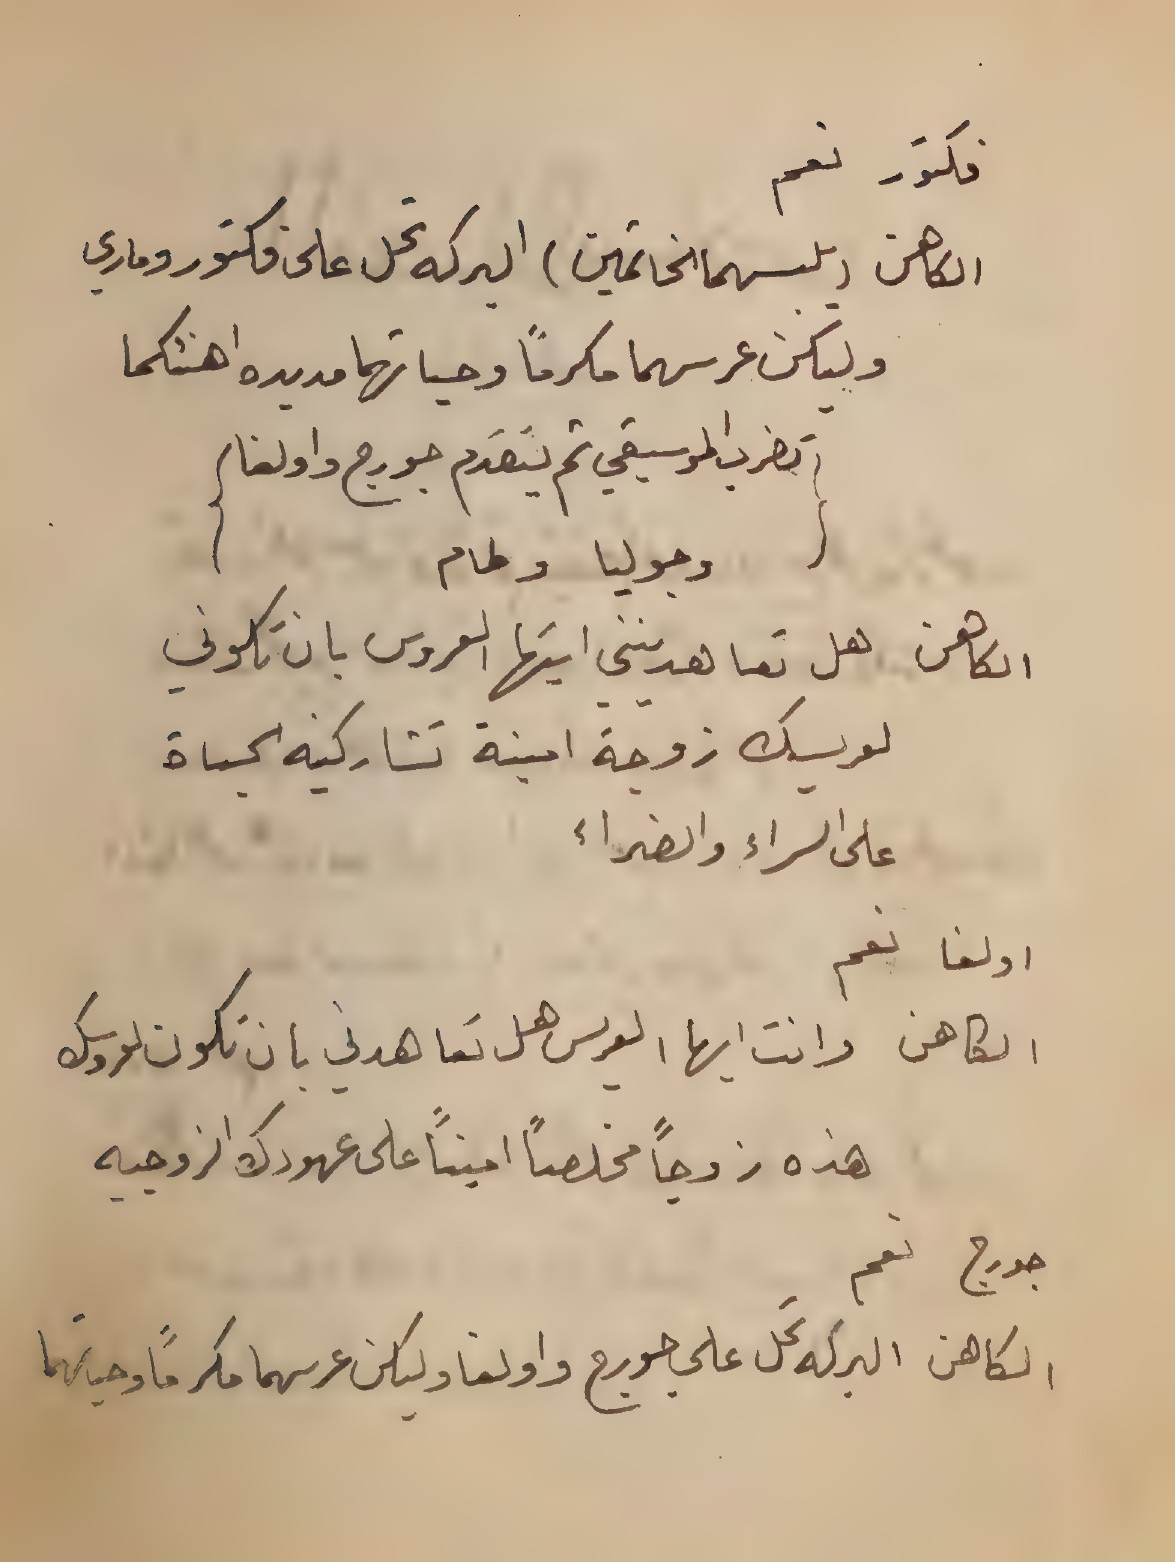 فكتور نعم
الكاهن (يلبسهما الخاتمين) البركه تحل على فكتور وماري
وليكن عرسهما مكرمًا وحياتهما مديده اهنئكما
{تضرب الموسيقي ثم يتقدم جورج واولغا
وجوليا ووليام}
الكاهن هل تعاهدينني ايتها العروس بان تكوني
لعريسك زوجة امينة تشاركينه الحياة
على السراء والضراء
اولغا نعم
الكاهن وانت ايها العريس هل تعاهدني بان تكون لعروسك
هذه زوجاً مخلصاً اميناً على عهودك الزوجيه
جورج نعم
الكاهن البركه تحل علي جورج واولغا وليكن عرسهما مكرمًا وحياتهما